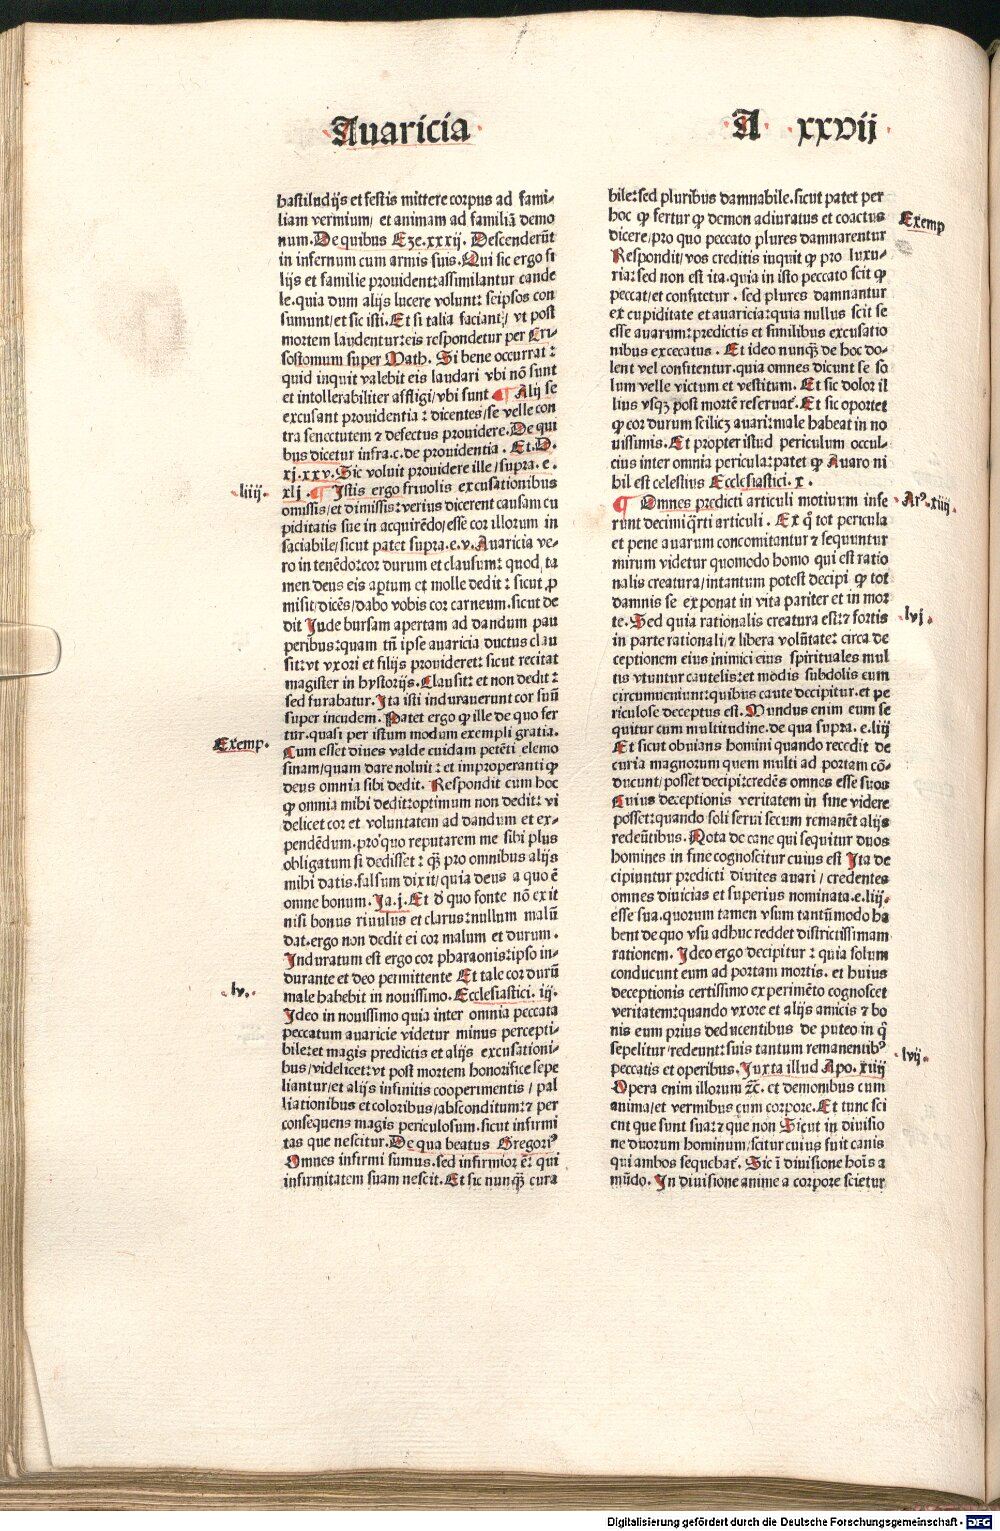 Auaricia
A xxvij
hastiludijs et festis mittere corpus ad fami-
liam vermium/ et animam ad familiā demo
num. De quibus Eze.xxxij. Descenderūt
in infernum cum armis suis. Qui sic ergo fi
lijs et familie prouident: assimilantur cande
le. quia dum alijs lucere volunt: seipsos con
sumunt/ et sic isti. Et si talia faciant/ vt post
mortem laudentur: eis respondetur per Cri-
sostomum super Math. Si bene occurrat:
quid inquit valebit eis laudari vbi nō sunt
et intollerabiliter affligi/ vbi sunt ¶ Alij se
excusant prouidentia: dicentes/ se velle con
tra senectutem ⁊ defectus prouidere. De qui
bus dicetur infra.c. de prouidentia. Et.D.
xj.xxv. Sic voluit prouidere ille/ supra.e.
xlj. ¶ Istis ergo friuolis excusationibus
.liiij.
omissis/ et dimissis: verius dicerent causam cu
piditatis sue in acquirēdo/ esse cor illorum in
saciabile/ sicut patet supra.e.v. Auaricia ve-
ro in tenēdo: cor durum et clausum: quod ta
men deus eis aptum et molle dedit: sicut ꝓ
misit/ dicēs/ dabo vobis cor carneum. sicut de
dit Jude bursam apertam ad dandum pau
peribus: quam tñ ipse auaricia ductus clau
sit: vt vxori et filijs prouideret: sicut recitat
magister in hystorijs. Clausit: et non dedit:
sed furabatur. Ita isti indurauerunt cor suū
super incudem. Patet ergo ꝙ ille de quo fer
tur. quasi per istum modum exempli gratia.
Exemp.
Cum esset diues valde cuidam petēti elemo
sinam/ quam dare noluit: et improperanti ꝙ
deus omnia sibi dedit. Respondit cum hoc
ꝙ omnia mihi dedit: optimum non dedit: vi
delicet cor et voluntatem ad dandum et ex-
pendēdum. pro quo reputarem me sibi plus
obligatum si dedisset: q̄ȝ pro omnibus alijs
mihi datis. falsum dixit/ quia deus a quo ē
omne bonum. Ja.j. Et d' quo fonte nō exit
nisi bonus riuulus et clarus: nullum malū
dat. ergo non dedit ei cor malum et durum.
Induratum est ergo cor pharaonis: ipso in-
durante et deo permittente Et tale cor durū
male habebit in nouissimo. Ecclesiastici. iij.
.lv.
Ideo in nouissimo quia inter omnia peccata
peccatum auaricie videtur minus percepti-
bile: et magis predictis et alijs excusationi-
bus/ videlicet: vt post mortem honorifice sepe
liantur/ et alijs infinitis cooperimentis/ pal
liationibus et coloribus/ absconditum: ⁊ per
consequens magis periculosum. sicut infirmi
tas que nescitur. De qua beatus Gregoriꝰ
Omnes infirmi sumus. sed infirmior ē: qui
infirmitatem suam nescit. Et sic nunq̄ȝ cura
bile: sed pluribus damnabile. sicut patet per
hoc ꝙ fertur ꝙ demon adiuratus et coactus
Exemp
dicere/ pro quo peccato plures damnarentur
Respondit/ vos creditis inquit ꝙ pro luxu-
ria: sed non est ita. quia in isto peccato scit ꝙ
peccat/ et confitetur. sed plures damnantur
ex cupiditate et auaricia: quia nullus scit se
esse auarum: predictis et similibus excusatio
nibus excecatus. Et ideo nunq̄ȝ de hoc do-
lent vel confitentur. quia omnes dicunt se so
lum velle victum et vestitum. Et sic dolor il
lius vsqȝ post mortē reseruat̄. Et sic oportet
ꝙ cor durum scilicȝ auari: male habeat in no
uissimis. Et propter istud periculum occul-
cius inter omnia pericula: patet ꝙ Auaro ni
hil est celestius Ecclesiastici. x.
¶ Omnes predicti articuli motiuum infe
Arꝰ.xiiij.
runt decimiq̄rti articuli. Ex q̄ tot pericula
et pene auarum concomitantur ⁊ sequuntur
mirum videtur quomodo homo qui est ratio
nalis creatura/ intantum potest decipi ꝙ tot
damnis se exponat in vita pariter et in mor
te. Sed quia rationalis creatura est: ⁊ fortis
.lvj.
in parte rationali/ ⁊ libera volūtate: circa de
ceptionem eius inimici eius spirituales mul
tis vtuntur cautelis: et modis subdolis eum
circumueniunt: quibus caute decipitur. et pe
riculose deceptus est. Mundus enim eum se
quitur cum multitudine. de qua supra. e.liij
Et sicut obuians homini quando recedit de
curia magnorum quem multi ad portam cō-
ducunt/ posset decipi: credēs omnes esse suos
Cuius deceptionis veritatem in fine videre
posset: quando soli serui secum remanēt alijs
redeūtibus. Nota de cane qui sequitur duos
homines in fine cognoscitur cuius est Ita de
cipiuntur predicti diuites auari/ credentes
omnes diuicias et superius nominata.e.liij.
esse sua. quorum tamen vsum tantūmodo ha
bent de quo vsu adhuc reddet districtissimam
rationem. Ideo ergo decipitur: quia solum
conducunt eum ad portam mortis. et huius
deceptionis certissimo experimēto cognoscet
veritatem: quando vxore et alijs amicis ⁊ bo
nis eum prius deducentibus de puteo in q̄
sepelitur/ redeunt: suis tantum remanentibꝰ
.lvij.
peccatis et operibus. Juxta illud Apo. xiiij
Opera enim illorum ⁊c̄. et demonibus cum
anima/ et vermibus cum corpore. Et tunc sci
ent que sunt sua: ⁊ que non Sicut in diuisio
ne duorum hominum/ scitur cuius fuit canis
qui ambos sequebat̄. Sic ī diuisione hoīs a
mūdo. In diuisione anime a corpore scietur
Digitalisierung gefördert durch die Deutsche Forschungsgemeinschaft - DFG